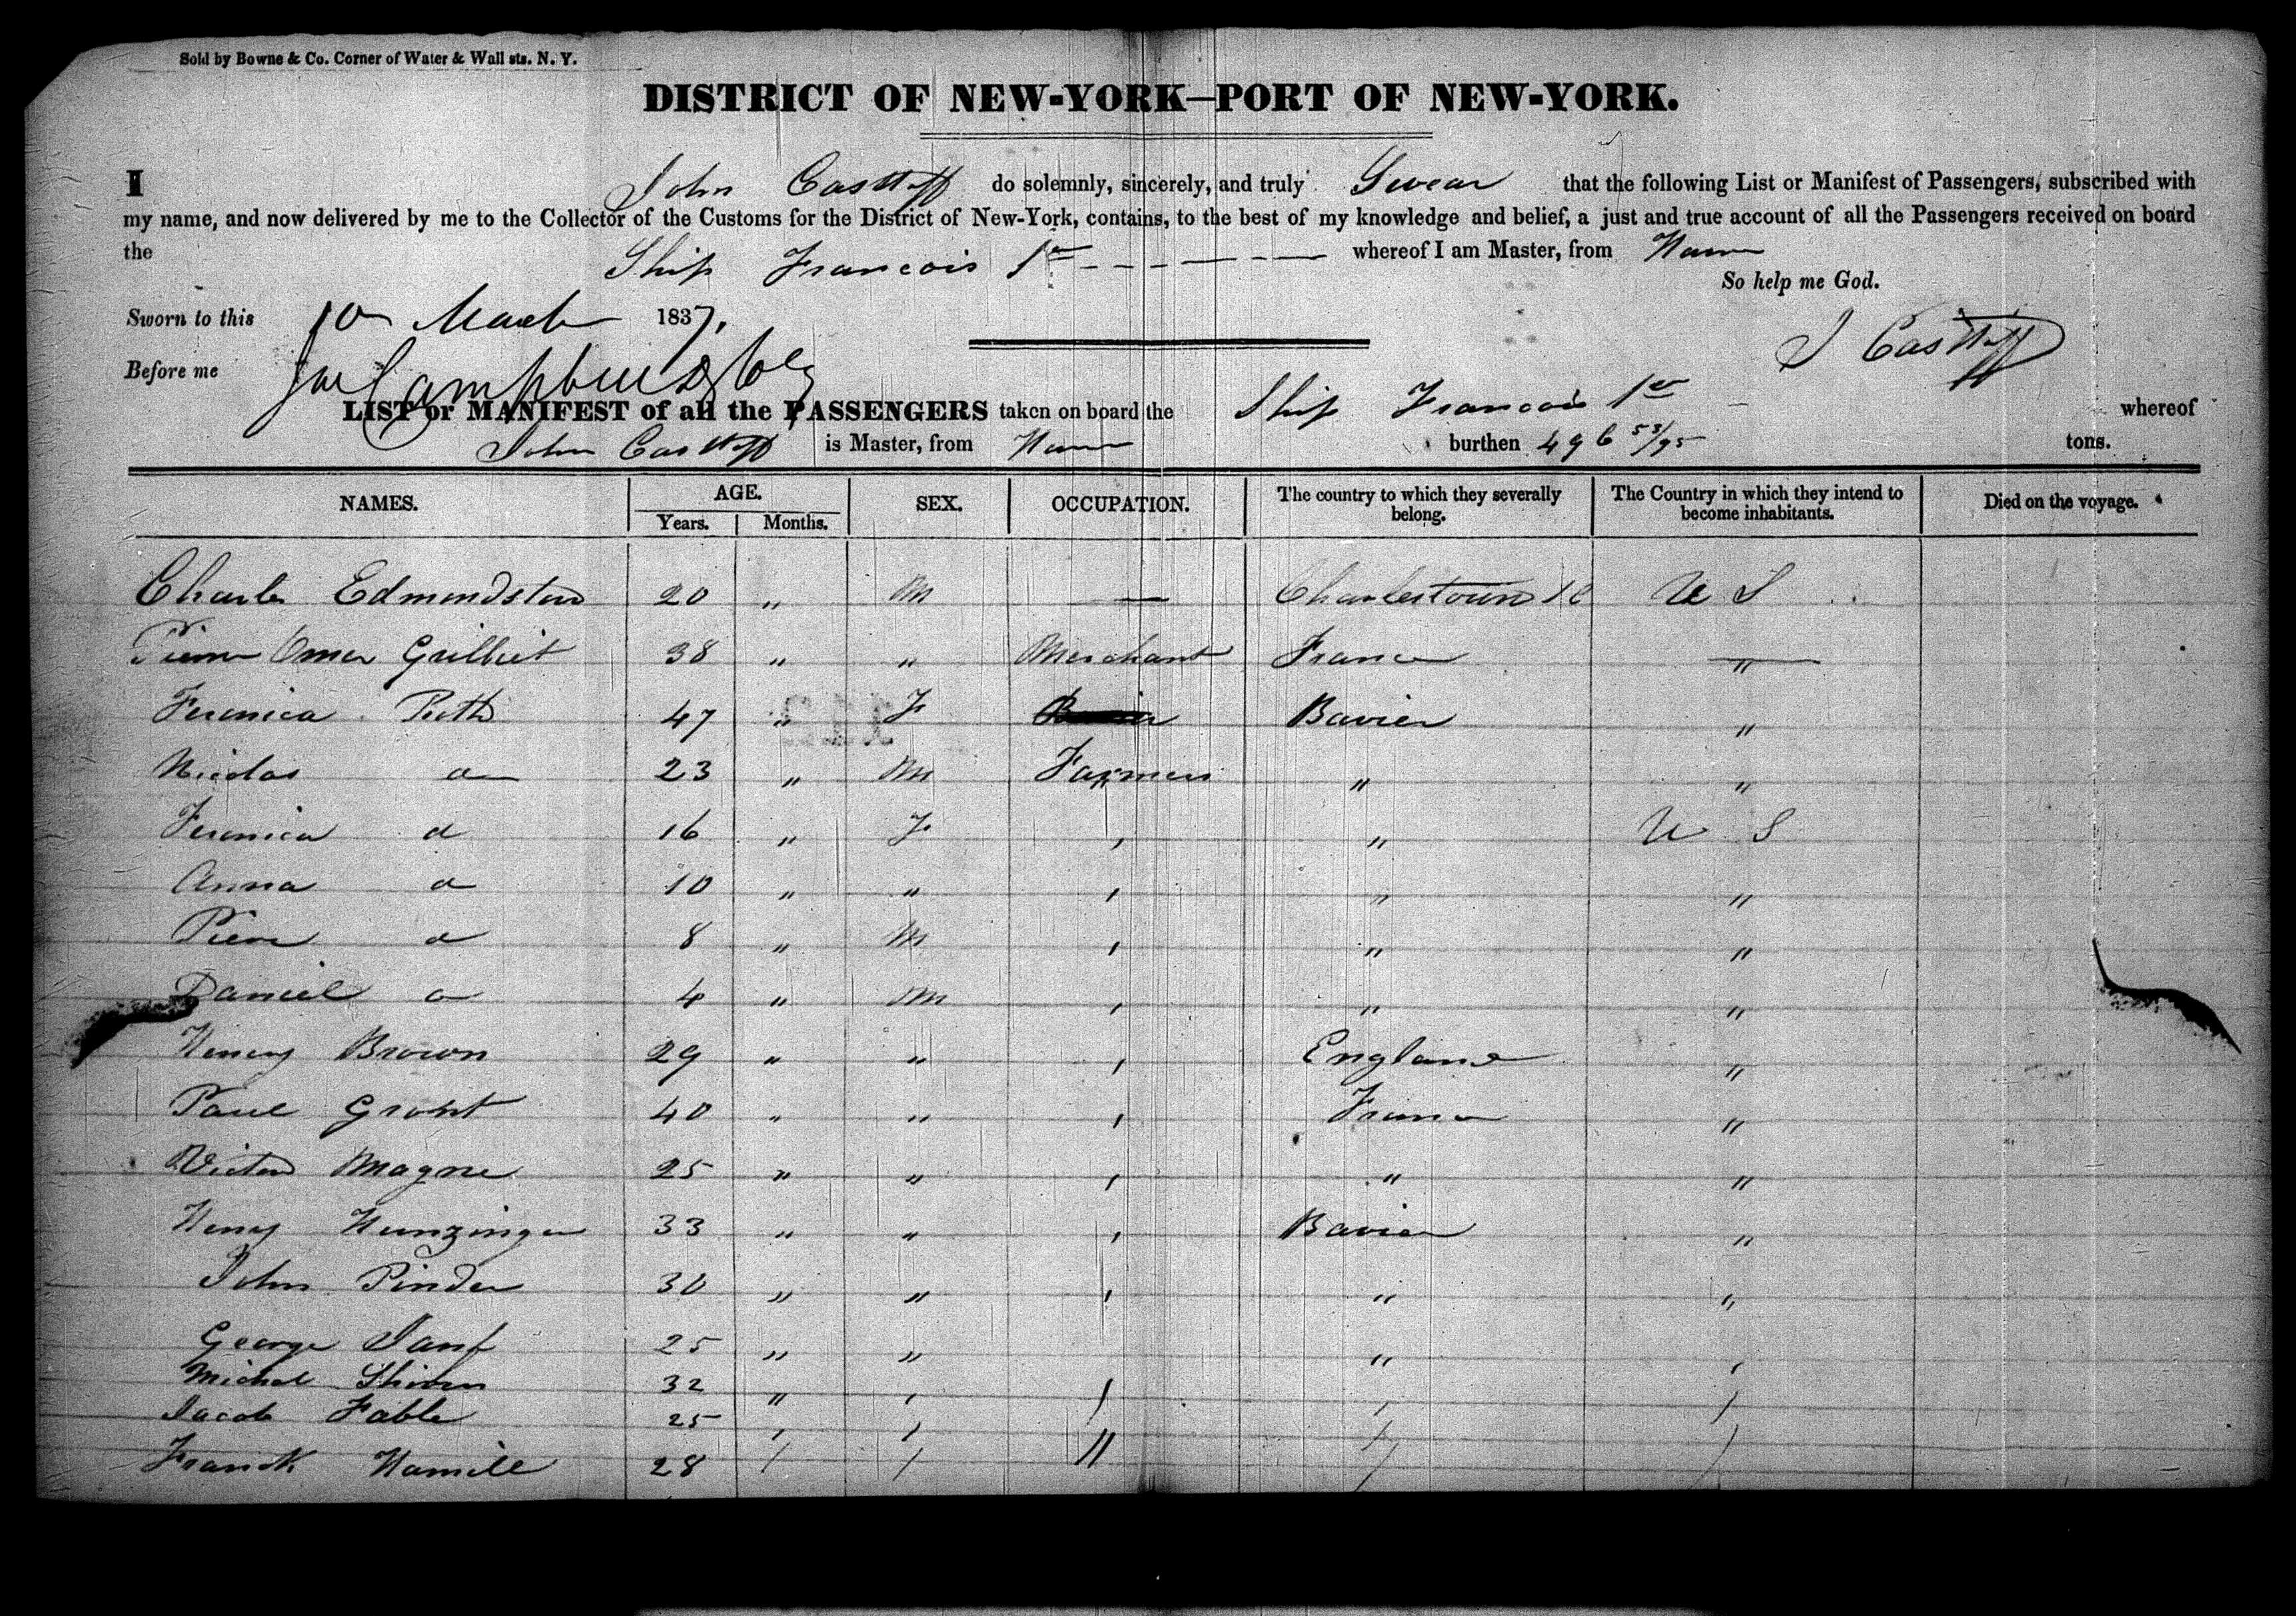 Sold by Bowne & Co. Corner of Water & Wall sts. N. Y.
DISTRICT OF NEW-YORK—PORT OF NEW-YORK.
I John Castoff do solemnly, sincerely, and truly Swear that the following List or Manifest of Passengers, subscribed with
my name, and now delivered by me to the Collector of the Customs for the District of New-York, contains, to the best of my knowledge and belief, a just and true account of all the Passengers received on board
the Ship Francois 1er whereof I am Master, from Havre
So help me God.
Sworn to this 10 March 1837.
J Castoff
Before me
LIST or MANIFEST of all the PASSENGERS taken on board the Ship Francois 1er whereof
John Castoff is Master, from Havre burthen 496 53/95 tons.
NAMES. AGE. SEX. OCCUPATION. The country to which they severally belong. The Country in which they intend to become inhabitants. Died on the voyage.
Years. Months.
Charles Edmondston 20 " M — Charlestown SC U S
Pierre Omer Grilliet 38 " " Merchant France "
Feronica Ruth 47 " F Bavier "
Nicolas do 23 " M Farmers " "
Feronica d 16 " F , " U S
Anna d 10 " " , " "
Pierre d 8 " M , " "
Daniel d 4 " M , " "
Henry Brown 29 " " , England "
Paul Gront 40 " " , France "
Victor Magne 25 " " , " "
Henry Hunzinger 33 " " , Bavier "
John Pinder 30 " " , " "
George 25 " " " ,
Michel 32 " , , , ,
Jacob Fable 25 , , , , ,
Franck Hamill 28 , , " , ,